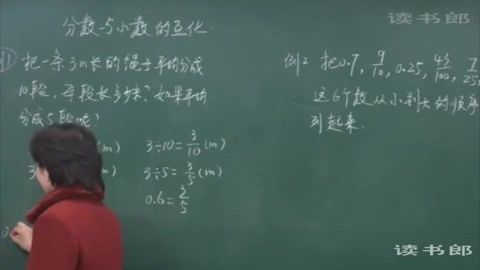 读书郎
分数与小数的互化
例1 把一条3m长的绳子平均分成
10段，每段长多少米？如果平均
分成5段呢？
(m) 3÷10=3/10(m)
3 (m) 3÷5=3/5(m)
0.6=3/5
0
例2 把0.7, 9/10, 0.25, 43/100, 7/25
这6个数从小到大的顺序
列起来.
读书郎